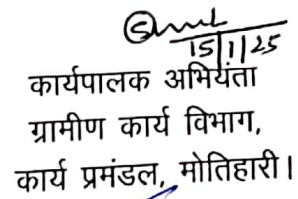 15/1/25
कार्यपालक अभियंता
ग्रामीण कार्य विभाग,
कार्य प्रमंडल, मोतिहारी।